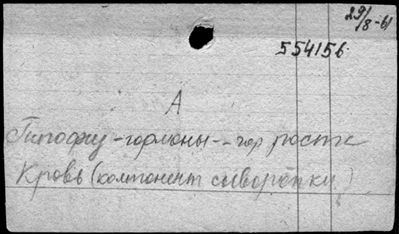 29/8-61
554156
А
Гипофиз - гормоны - гор роста
Кровь (компонент сыворотки)